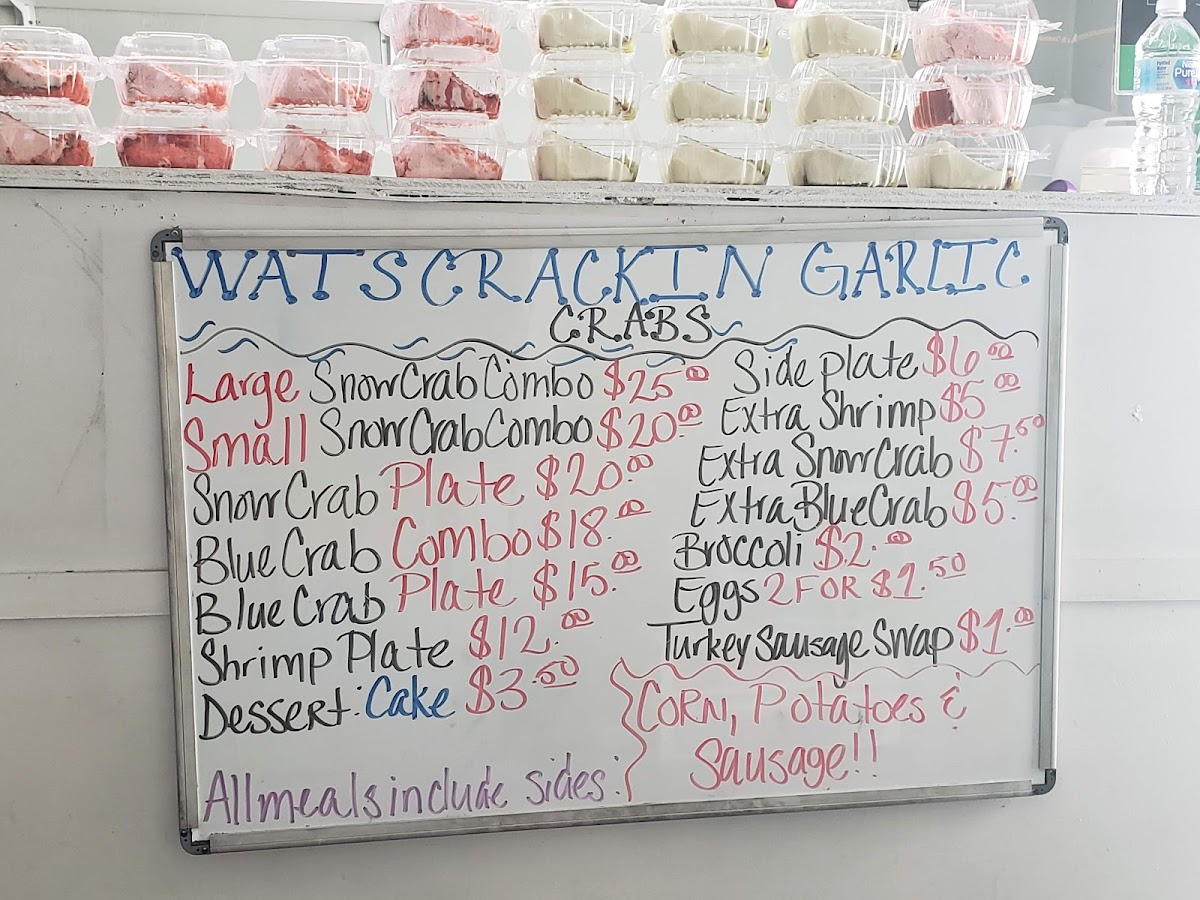 WATS CRACKIN GARLIC
CRABS
Large Snow Crab Combo $25.00
Small Snow Crab Combo $20.00
Snow Crab Plate $20.00
Blue Crab Combo $18.00
Blue Crab Plate $15.00
Shrimp Plate $12.00
Dessert: Cake $3.00
Side plate $6.00
Extra Shrimp $5.00
Extra Snow Crab $7.50
Extra Blue Crab $5.00
Broccoli $2.00
Eggs 2 FOR $1.50
Turkey Sausage Swap $1.00
All meals include sides:
Corn, Potatoes &
Sausage!!